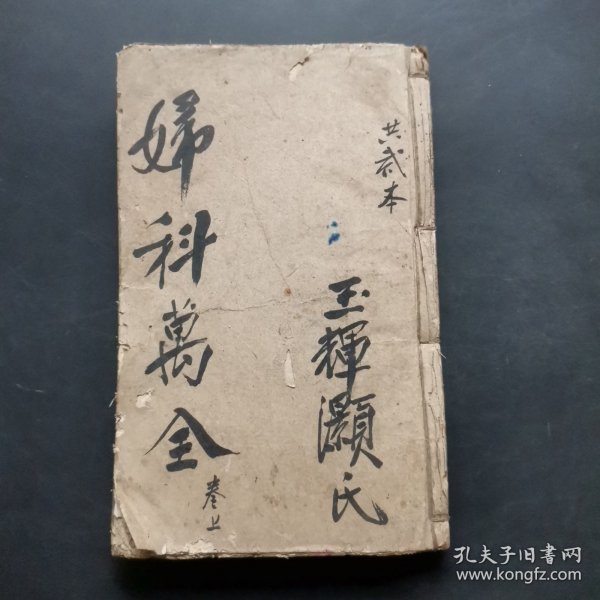 共貳本
玉輝灝氏
婦科萬全
卷上
孔夫子旧書网
www.kongfz.com